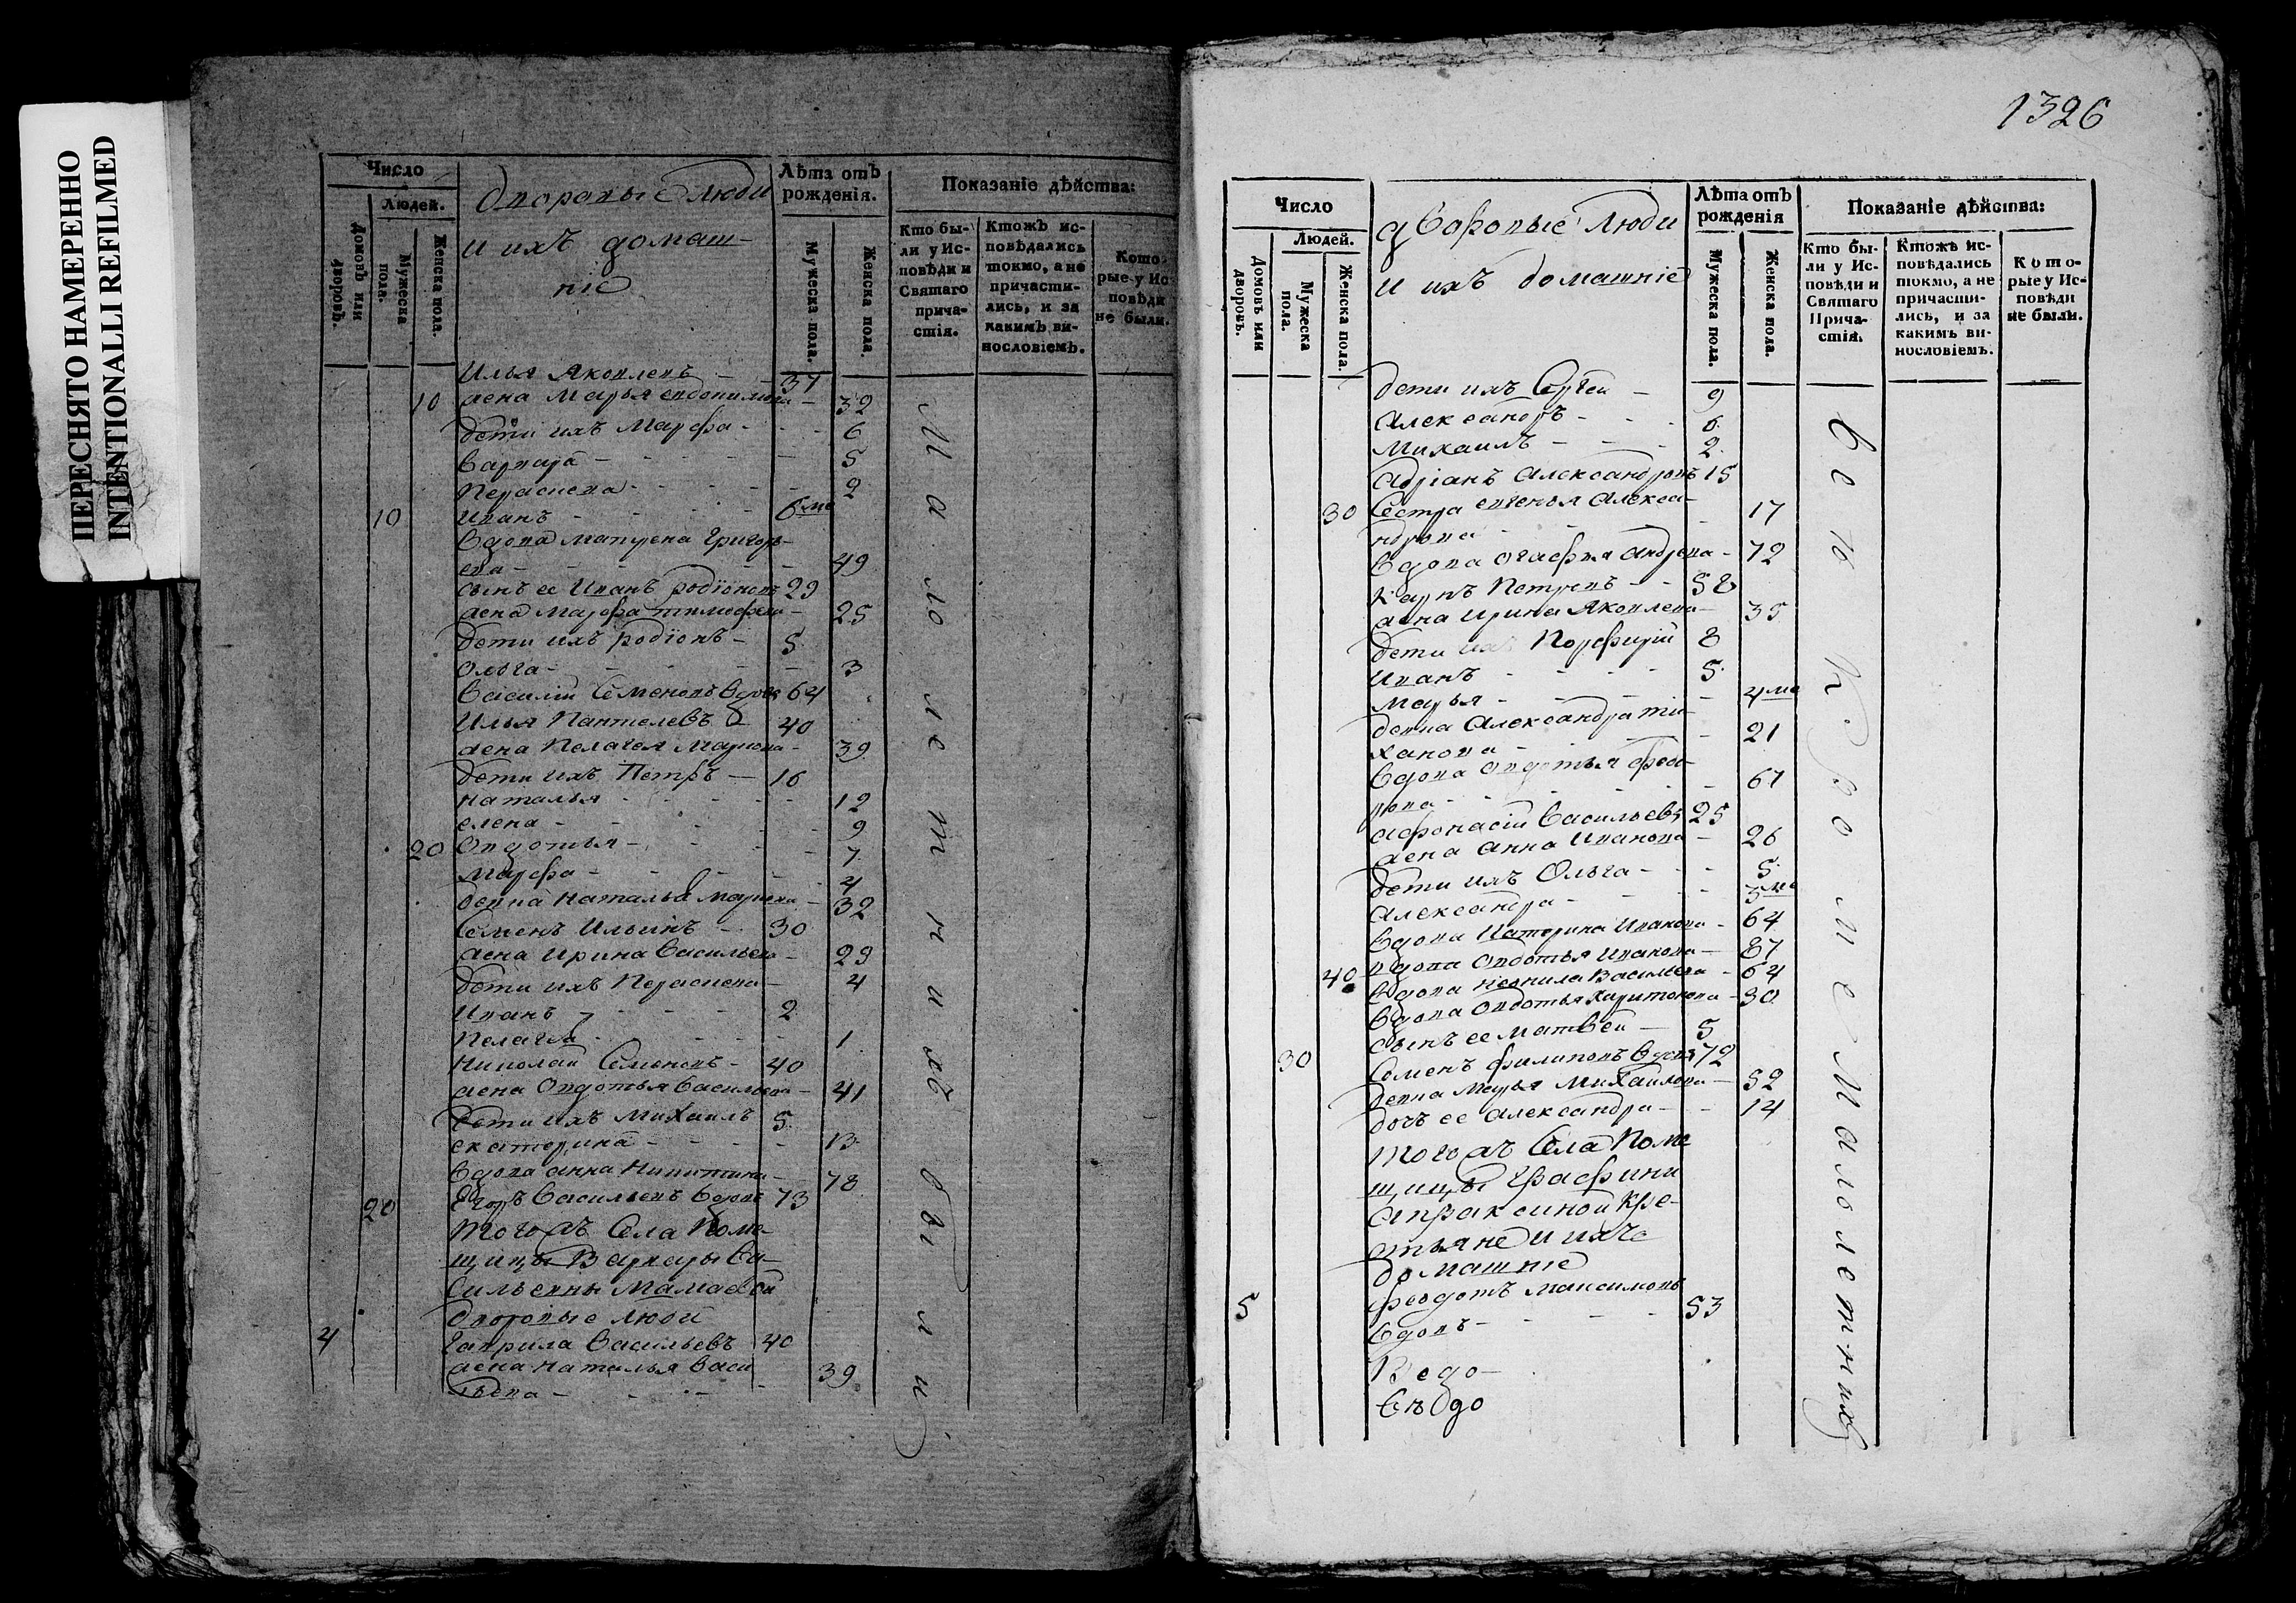 ПЕРЕСНЯТО НАМЕРЕННО
INTENTIONALLI REFILMED
Число
Людей.
Домовъ или дворовъ.
Мужеска пола.
Женска пола.
Дворовые люди
и ихъ домаш-
ніе
Лѣта отъ рожденія.
Мужеска пола.
Женска пола.
Показаніе дѣйства:
Кто бы-
ли у Ис-
повѣди и
Святаго
прича-
стія.
Ктожъ ис-
повѣдались
токмо, а не
причасти-
лись, и за
какимъ ви-
нословіемъ.
Кото-
рые у Ис-
повѣди
не были.
Илья Яковлевъ - 37
10 жена Марья - 32
дети ихъ Марфа - 6
Варвара - 5
Парасковья - 2
10 Иванъ - 6 ме
Вдова Матрена Григорь-
ева - 49
сынъ ее Иванъ Родіоновъ 29
жена Марфа Тимофеева - 25
дети ихъ Родіонъ - 5
Ольга - 3
Василій Семеновъ вдовъ 64
Илья Пантелевъ 40
жена Пелагея - 39
дети ихъ Петръ - 16
Наталья - 12
елена - 9
20 Овдотья - 7
Марфа - 4
девка Наталья - 32
Семенъ Ильинъ - 30
жена Ирина Васильева - 29
дети ихъ - 4
Иванъ - 2
Пелагея - 1
Николай Семеновъ - 40
жена Овдотья Васильева - 41
дети ихъ Михаилъ 5
екатерина - 13
Вдова анна Никитина - 78
20 Егоръ Васильевъ вдовъ 73
Того жъ Села Поме-
щицы Варвары Ва-
сильевны Мамаевой
дворовые люди
4 Гаврила Васильевъ 40
жена Наталья Васи
льева - 39
Малолетнихъ
были
1326
Число
Людей.
Домовъ или дворовъ.
Мужеска пола.
Женска пола.
дворовые люди
и ихъ домашніе
Лѣта отъ рожденія
Мужеска пола.
Женска пола.
Показаніе дѣйства:
Кто бы-
ли у Ис-
повѣди и
Святаго
Прича-
стія.
Ктожъ ис-
повѣдались
токмо, а не
причасти-
лись, и за
какимъ ви-
нословіемъ.
Кото-
рые у Ис-
повѣди
не были.
дети ихъ Сергей - 9
Александръ - 6
Михаилъ - 2
Адріанъ Александровъ 15
30 Сестра евгенья Алекса-
ндрова - 17
Вдова Агафья Андреева - 72
Карпъ Петровъ - 58
жена Ирина Яковлева - 35
дети ихъ Порфирій 8
Иванъ - 5
Марья - 4 ме
девка Александра Ти-
ханова - 21
Вдова Овдотья Федо-
рова - 67
Афонасій Васильевъ 25
жена анна Иванова - 26
дети ихъ Ольга - 5
Александра - 3 ме
Вдова Катерина Иванова - 64
вдова Овдотья Иванова - 87
40 Вдова Неонила Васильева - 64
Вдова Овдотья Харитонова - 30
сынъ ее Матвей - 5
30 Семенъ Филиповъ вдовъ 72
девка Марья Михайлова - 52
дочь ее Александра - 14
Того жъ Села Поме
щицы Графини
Апраксиной Кре-
стьяне и ихъ
домашніе
5 Феодотъ Максимовъ
вдовъ - 53
Кроме Малолетнихъ